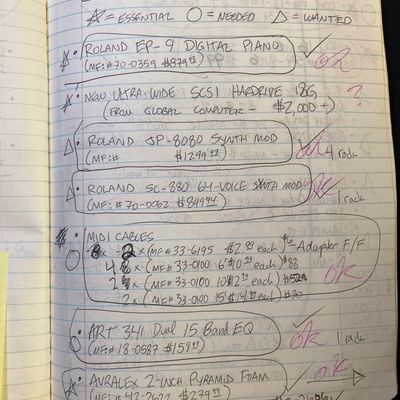 ☆ = ESSENTIAL ○ = NEEDED △ = WANTED
☆ • ROLAND EP-9 DIGITAL PIANO ✓ ok
(MF:#70-0359 $879⁰⁰)
☆ • NEW ULTRA-WIDE SCSI HARDRIVE 18G ?
(FROM GLOBAL COMPUTER - $2,000+)
△ • ROLAND JP-8080 SYNTH MOD ✓ ok
(MF:# $1299⁰⁰) 4 rack
△ • ROLAND SC-880 64-VOICE SYNTH MOD ✓ ok
(MF:#70-0962 $899⁰⁰) 1 rack
☆ • MIDI CABLES
x (MF# 33-6195 $2.⁹⁹ each) Adapter F/F
4 x (MF# 33-0100 6' $10⁹⁹ each)
x (MF# 33-0100 10' $12⁹⁹ each) ok
2 x (MF# 33-0100 15' $14⁹⁹ each) $30
○ • ART 341 Dual 15 Band EQ ✓ ok
(MF# 18-0587 $159⁰⁰) 1 rack
△ • AURALEX 2-INCH PYRAMID FOAM ✓ ok